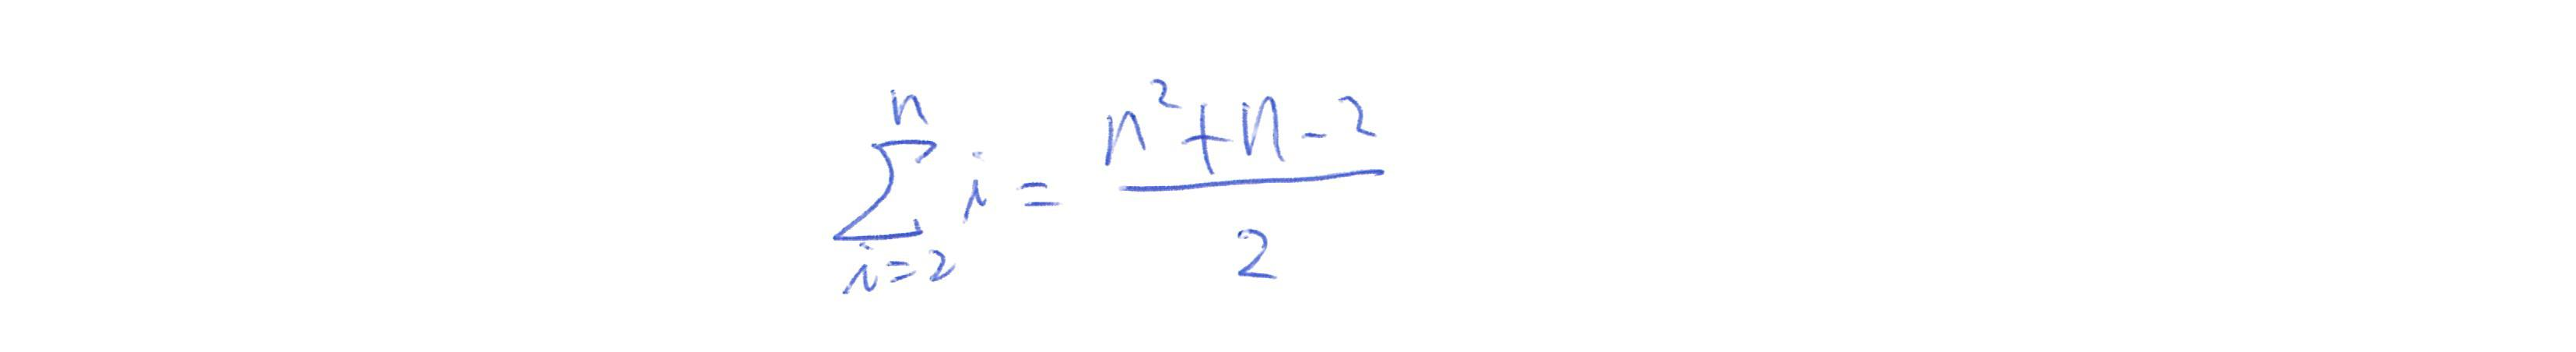 $\sum_{i=2}^{n} i = \frac{n^2+n-2}{2}$